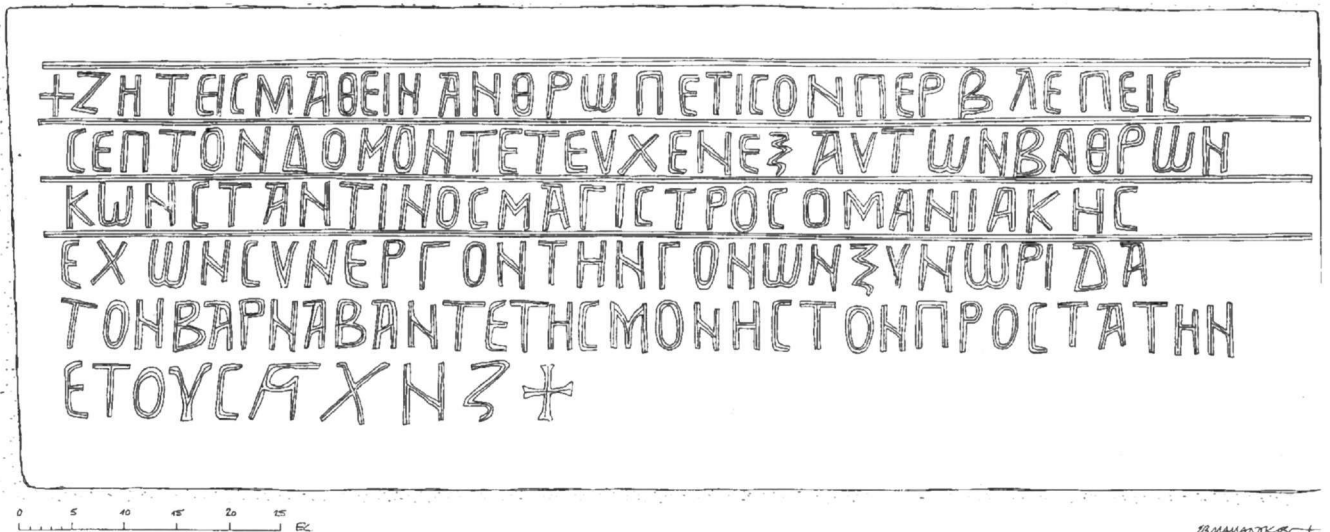 +ΖΗΤΕΙϹΜΑΘΕΙΝΑΝΘΡΩΠΕΤΙϹΟΝΠΕΡΒΛΕΠΕΙϹ
ϹΕΠΤΟΝΔΟΜΟΝΤΕΤΕΥΧΕΝΕΞΑΥΤΩΝΒΑΘΡΩΝ
ΚΩΝϹΤΑΝΤΙΝΟϹΜΑΓΙϹΤΡΟϹΟΜΑΝΙΑΚΗϹ
ΕΧΩΝϹΥΝΕΡΓΟΝΤΗΝΓΟΝΩΝΞΥΝΩΡΙΔΑ
ΤΟΝΒΑΡΝΑΒΑΝΤΕΤΗϹΜΟΝΗϹΤΟΝΠΡΟϹΤΑΤΗΝ
ΕΤΟΥϹϚΧΝΖ+
0 5 10 15 20 25 ΕΚ